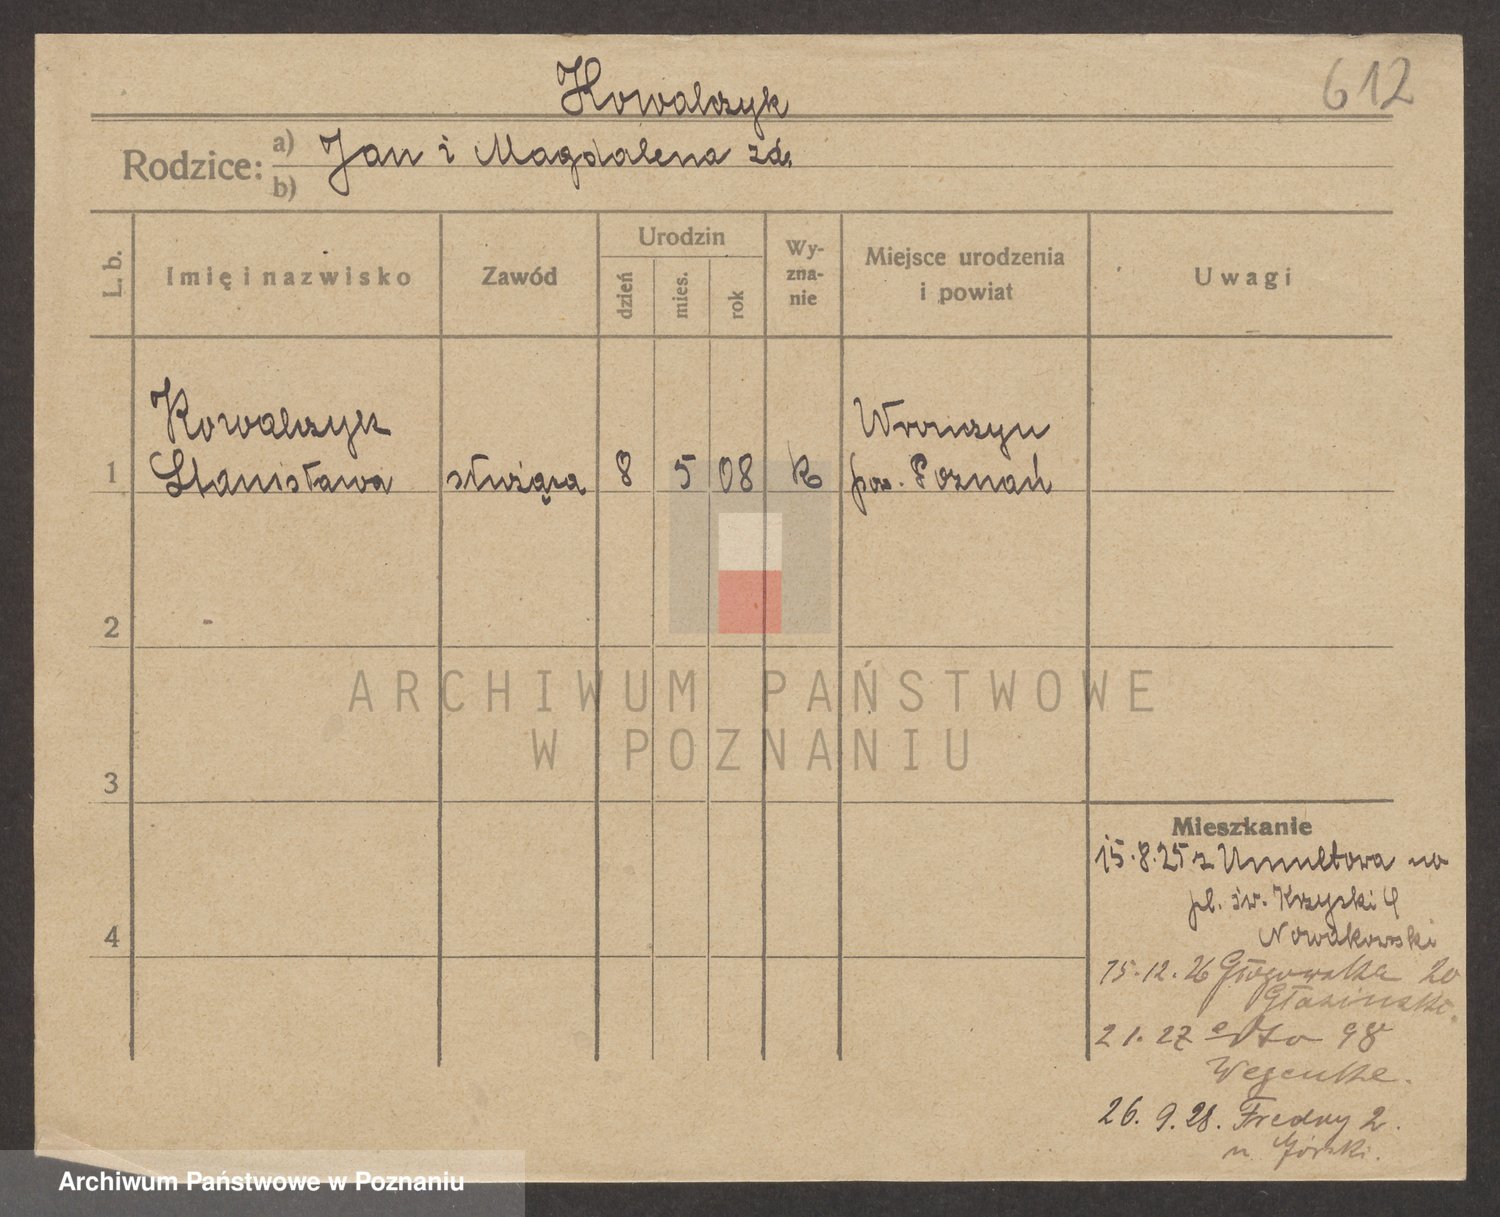 612
Kowalczyk
Rodzice: a) Jan i Magdalena zd.
b)
L. b.
Imię i nazwisko
Zawód
Urodzin
dzień
mies.
rok
Wy-
zna-
nie
Miejsce urodzenia
i powiat
Uwagi
Kowalczyk
Wronczyn
1 Stanisława służąca 8 5 08 k pow. Poznań
2
ARCHIWUM PAŃSTWOWE
W POZNANIU
3
Mieszkanie
15.8.25 z Umultowa na
pl. św. Krzyski 4
Nowakowski
4
15.12.26 Głogowska 20
2 1. 27 dto 98
26. 9. 28. Fredry 2.
u Górski.
Archiwum Państwowe w Poznaniu